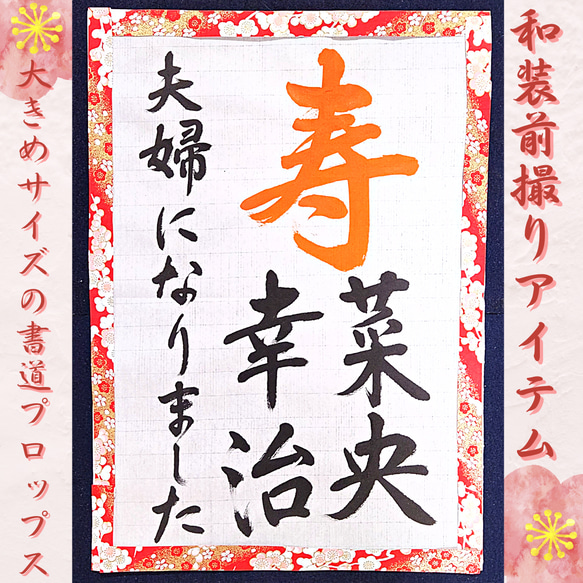 和装前撮りアイテム
寿
菜央
幸治
夫婦になりました
大きめサイズの書道プロップス